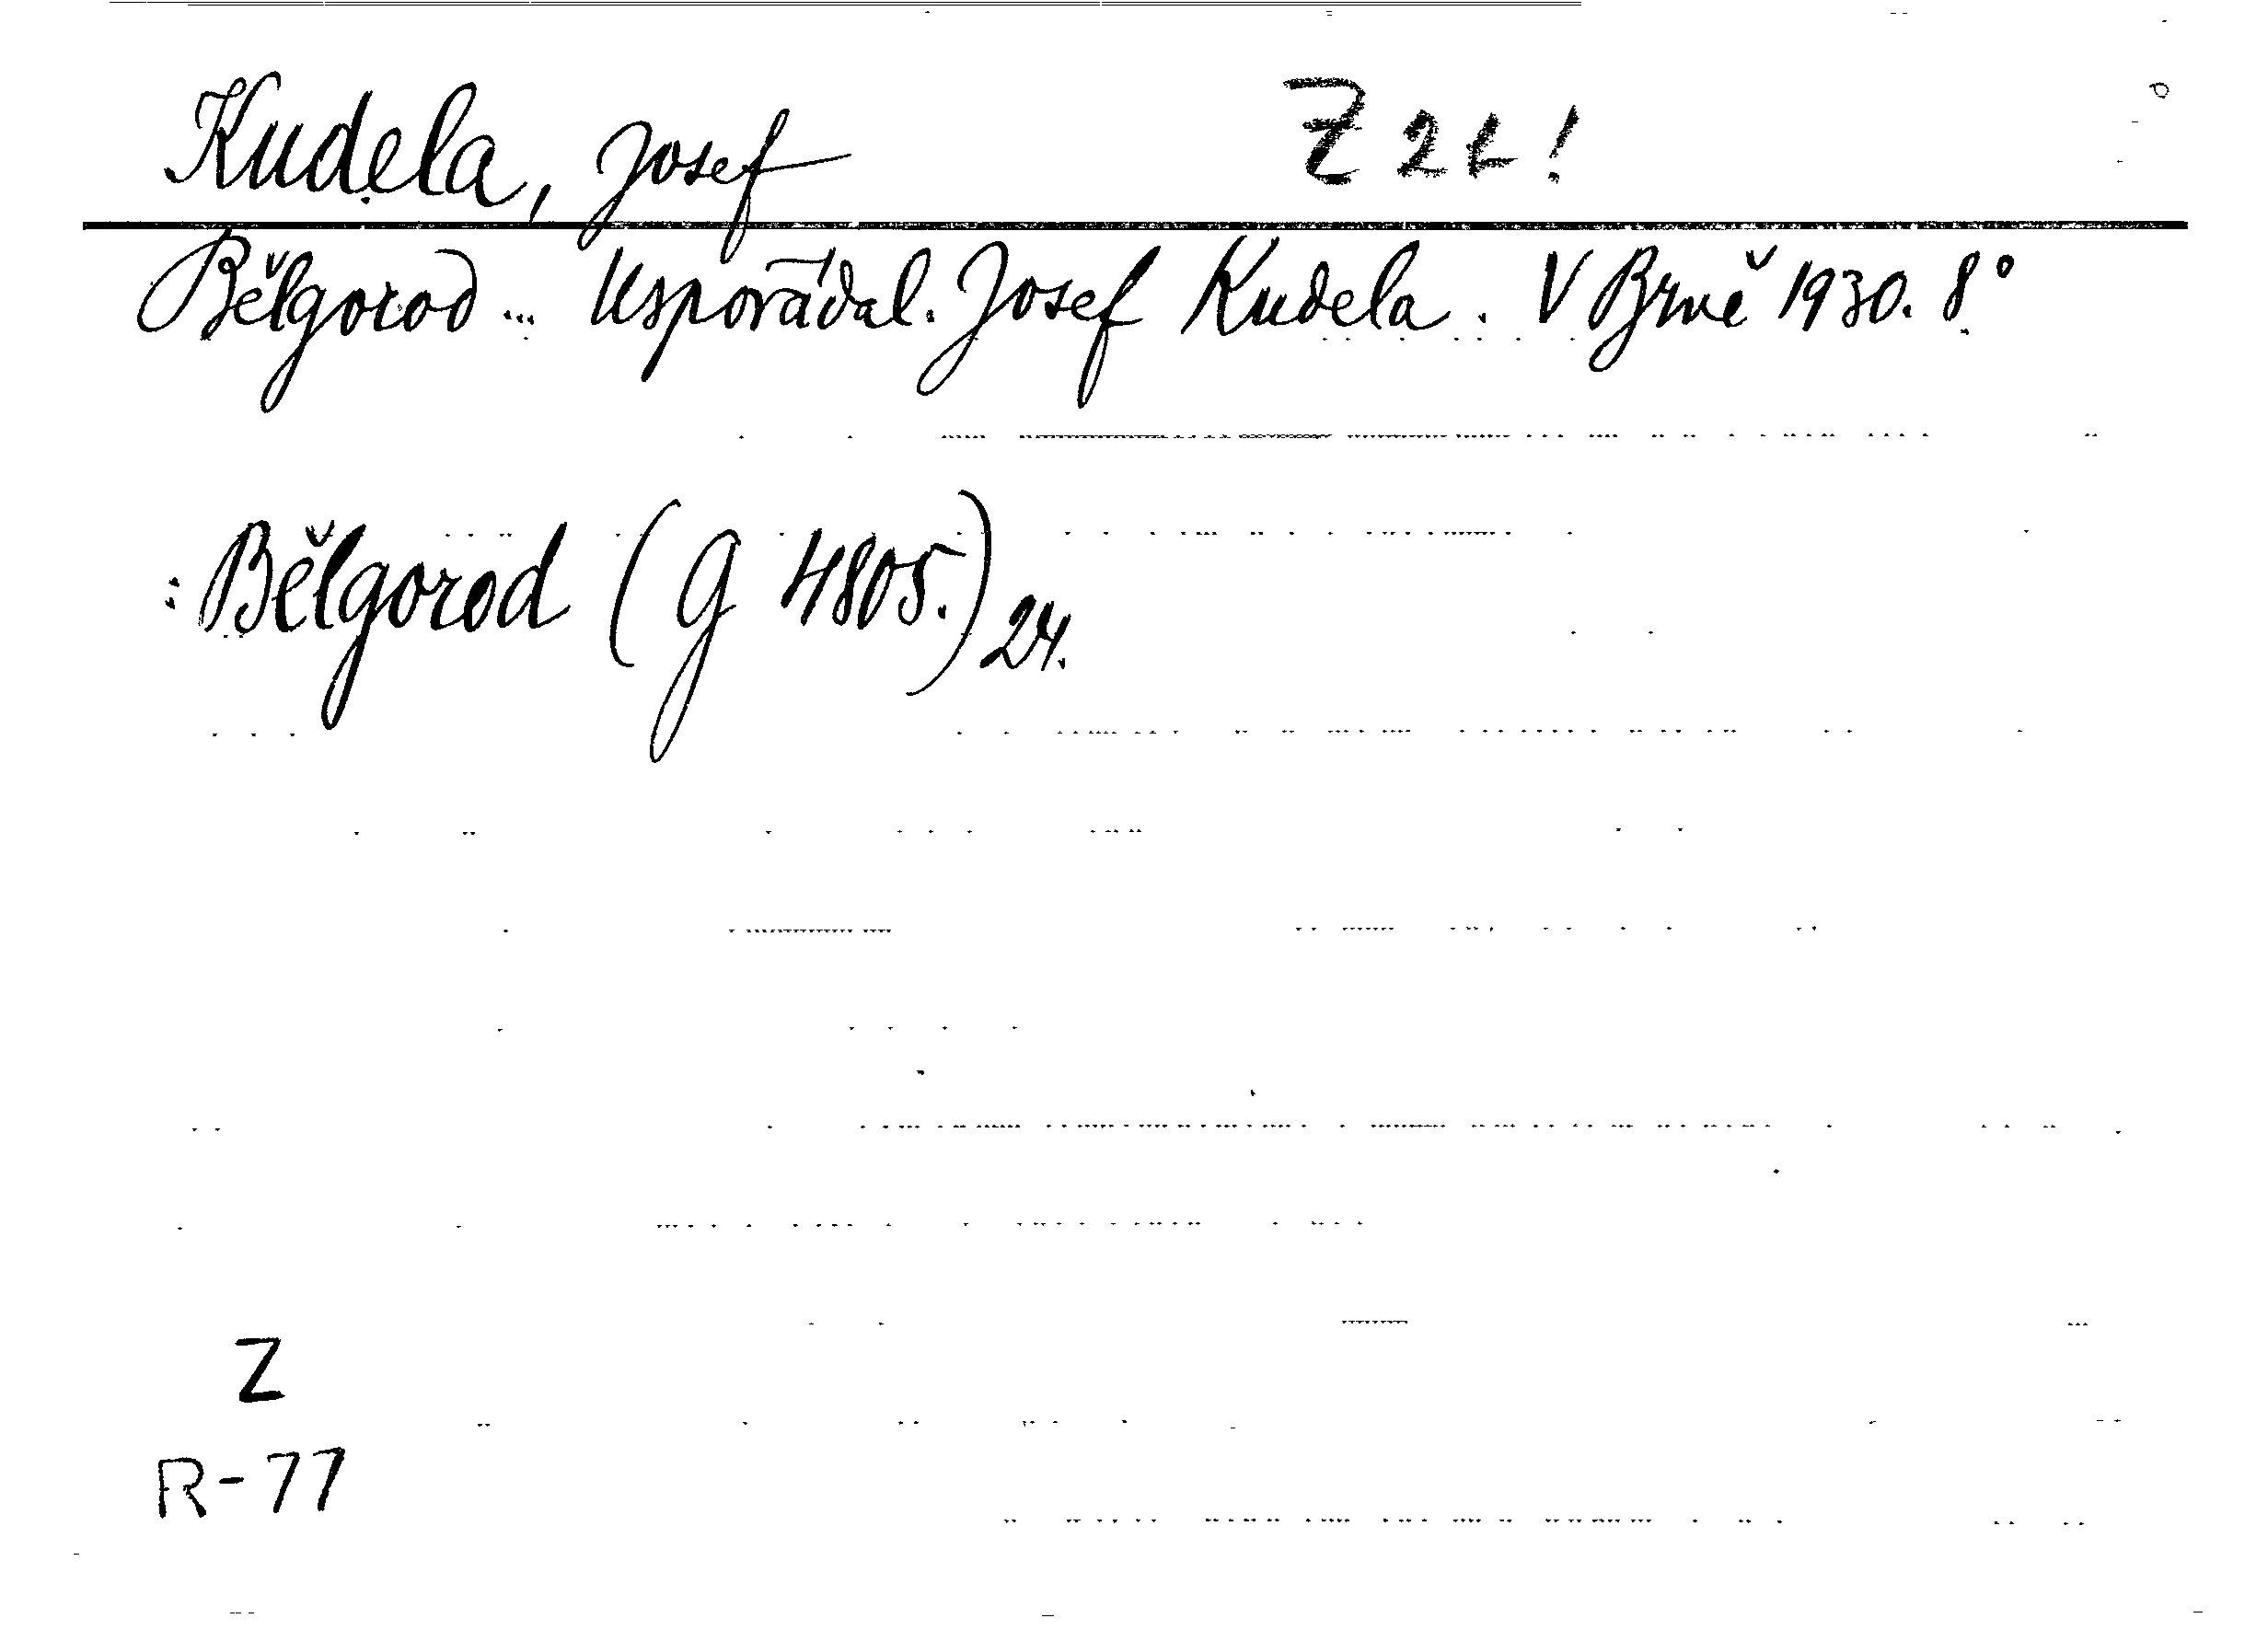 Kudela, Josef
Bělgorod ... Uspořádal. Josef Kudela. V Brně 1930. 8°
: Bělgorod (G 4805.) 24.
Z
R-77